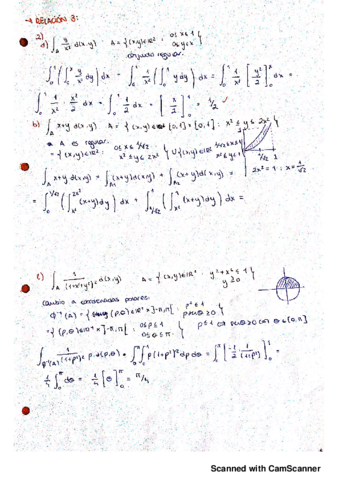 → RELACIÓN 3:
2)
a) ∫_A y/x² d(x,y)   A = {(x,y)∈ℝ² : 0≤x≤1, 0≤y≤x}
conjunto regular.
∫_0^1 (∫_0^x y/x² dy) dx = ∫_0^1 1/x² (∫_0^x y dy) dx = ∫_0^1 1/x² [y²/2]_0^x dx =
∫_0^1 1/x² · x²/2 dx = ∫_0^1 1/2 dx = [x/2]_0^1 = 1/2
b) ∫_A x+y d(x,y)   A = {(x,y)∈[0,1]×[0,1] : x² ≤ y ≤ 2x²}
A es regular.
= {(x,y)∈ℝ² : 0≤x≤1/√2, x²≤y≤2x²} ∪ {(x,y)∈ℝ² : 1/√2≤x≤1, x²≤y≤1}
1/√2 1
2x² = 1 ; x = 1/√2
∫_A x+y d(x,y) = ∫_A1 (x+y) d(x,y) + ∫_A2 (x+y) d(x,y) =
= ∫_0^{1/√2} (∫_{x²}^{2x²} (x+y) dy) dx + ∫_{1/√2}^1 (∫_{x²}^1 (x+y) dy) dx =
c) ∫_A 1/(1+x²+y²)² d(x,y)   A = {(x,y)∈ℝ² : y²+x² ≤ 1, y≥0}
Cambio a coordenadas polares.
φ⁻¹(A) = {(ρ,θ)∈ℝ⁺×]-π,π[ : ρ² ≤ 1, ρ senθ ≥ 0}
= {(ρ,θ)∈ℝ⁺×]-π,π[ : 0≤ρ≤1, 0≤θ≤π}   ρ≤1 ρ senθ≥0 con θ∈[0,π]
∫_{φ⁻¹(A)} 1/(1+ρ²)² ρ d(ρ,θ) = ∫_0^π ∫_0^1 ρ(1+ρ²)^-2 dρ dθ = ∫_0^π [-1/2 · 1/(1+ρ²)]_0^1 =
1/4 ∫_0^π dθ = 1/4 [θ]_0^π = π/4
Scanned with CamScanner